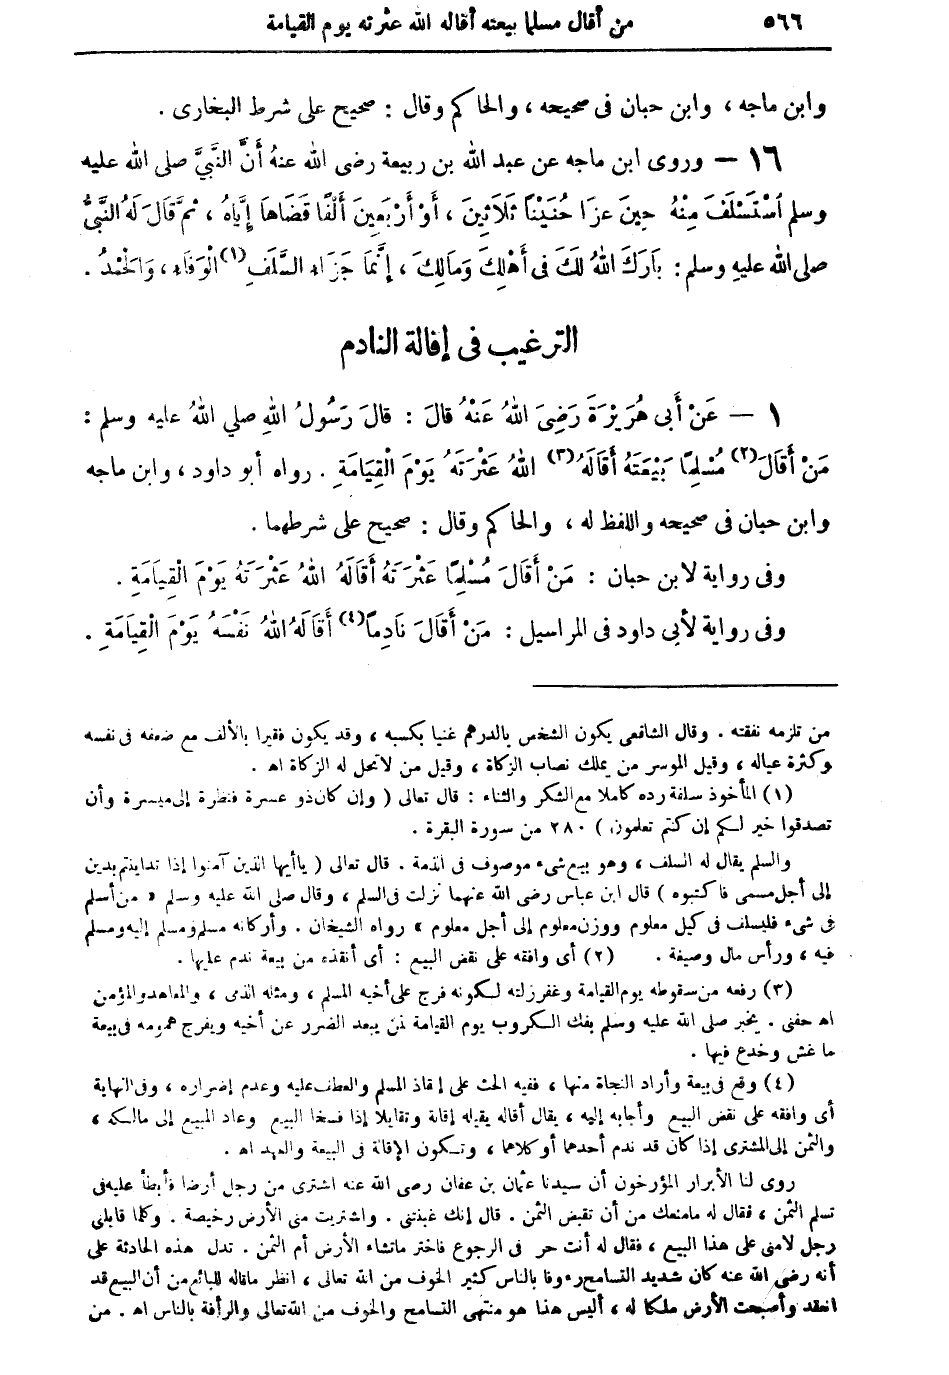 ٥٦٦ من أقال مسلما بيعته أقاله الله عثرته يوم القيامة
وابن ماجه ، وابن حبان فى صحيحه ، والحاكم وقال : صحيح على شرط البخارى .
١٦ — وروى ابن ماجه عن عبد الله بن ربيعة رضى الله عنهُ أَنَّ النَّبِيَّ صلى الله عليه
وسلم اُسْتَسْلَفَ مِنْهُ حِينَ غزَا حُنَيْنًا ثَلَاثِينَ ، أَوْ أَرْبَعِينَ أَلْفًا قَضَاهَا إِيَّاهُ ، ثم قَالَ لَهُ النَّبِيُّ
صلى الله عليه وسلم : بَارَكَ اللهُ لَكَ فى أَهْلِكَ وَمَالِكَ ، إِنَّمَا جَزَاءُ السَّلَفِ (١) الْوَفَاءُ ، وَالْحَمْدُ .
الترغيب فى إقالة النادم
١ — عَنْ أَبى هُرَيْرَةَ رَضِىَ اللهُ عَنْهُ قَالَ : قالَ رَسُولُ اللهِ صلي اللهُ عليه وسلم :
مَنْ أَقَالَ (٢) مُسْلِمًا بَيْعَتَهُ أَقَالَهُ (٣) اللهُ عَثْرَتَهُ يَوْمَ الْقِيَامَةِ . رواه أبو داود ، وابن ماجه
وابن حبان فى صحيحه واللفظ له ، والحاكم وقال : صحيح على شرطهما .
وفى رواية لابن حبان : مَنْ أَقَالَ مُسْلِمًا عَثْرَتَهُ أَقَالَهُ اللهُ عَثْرَتَهُ يَوْمَ الْقِيَامَةِ .
وفى رواية لأبى داود فى المراسيل : مَنْ أَقَالَ نَادِماً (٤) أَقَالَهُ اللهُ نَفْسَهُ يَوْمَ الْقِيَامَةِ .
من تلزمه نفقته . وقال الشافعى يكون الشخص بالدرهم غنيا بكسبه ، وقد يكون فقيرا بالألف مع ضعفه فى نفسه
وكثرة عياله ، وقيل الموسر من يملك نصاب الزكاة ، وقيل من لا تحل له الزكاة اه .
(١) المأخوذ سلفة رده كاملا مع الشكر والثناء : قال تعالى ( وإن كان ذو عسرة فنظرة إلى ميسرة وأن
تصدقوا خير لكم إن كنتم تعلمون ) ٢٨٠ من سورة البقرة .
والسلم يقال له السلف ، وهو بيع شىء موصوف فى الذمة . قال تعالى ( ياأيها الذين آمنوا إذا تداينتم بدين
إلى أجل مسمى فاكتبوه ) قال ابن عباس رضى الله عنهما نزلت فى السلم ، وقال صلى الله عليه وسلم « من أسلم
فى شىء فليسلف فى كيل معلوم ووزن معلوم إلى أجل معلوم » رواه الشيخان . وأركانه مسلم ومسلم إليه ومسلم
فيه ، ورأس مال وصيغة . (٢) أى وافقه على نقض البيع : أى أنقذه من بيعة ندم عليها .
(٣) رفعه من سقوطه يوم القيامة وغفر زلته لكونه فرج على أخيه المسلم ، ومثله الذمى ، والمعاهد والمؤمن
اه حفنى . يخبر صلى الله عليه وسلم بفك الكروب يوم القيامة لمن يبعد الضرر عن أخيه ويفرج همومه فى بيعة
ما غش وخدع فيها .
(٤) وقع فى بيعة وأراد النجاة منها ، ففيه الحث على إنقاذ المسلم والعطف عليه وعدم إضراره ، وفى النهاية
أى وافقه على نقض البيع وأجابه إليه ، يقال أقاله يقيله إقالة وتقايلا إذا فسخا البيع وعاد المبيع إلى مالكه ،
والثمن إلى المشترى إذا كان قد ندم أحدهما أو كلاهما ، وتكون الإقالة فى البيعة والعهد اه .
روى لنا الأبرار المؤرخون أن سيدنا عثمان بن عفان رضى الله عنه اشترى من رجل أرضا فأبطأ عليه فى
تسلم الثمن ، فقال له مامنعك من أن تقبض الثمن . قال إنك غبنتنى . واشتريت منى الأرض رخيصة . وكلما قابلنى
رجل لامنى على هذا البيع ، فقال له أنت حر فى الرجوع فاختر ماتشاء الأرض أم الثمن . تدل هذه الحادثة على
أنه رضى الله عنه كان شديد التسامح رءوفا بالناس كثير الخوف من الله تعالى ، انظر ماقاله للبائع من أن البيع قد
انعقد وأصبحت الأرض ملكا له ، أليس هذا هو منتهى التسامح والخوف من الله تعالى والرأفة بالناس اه . من